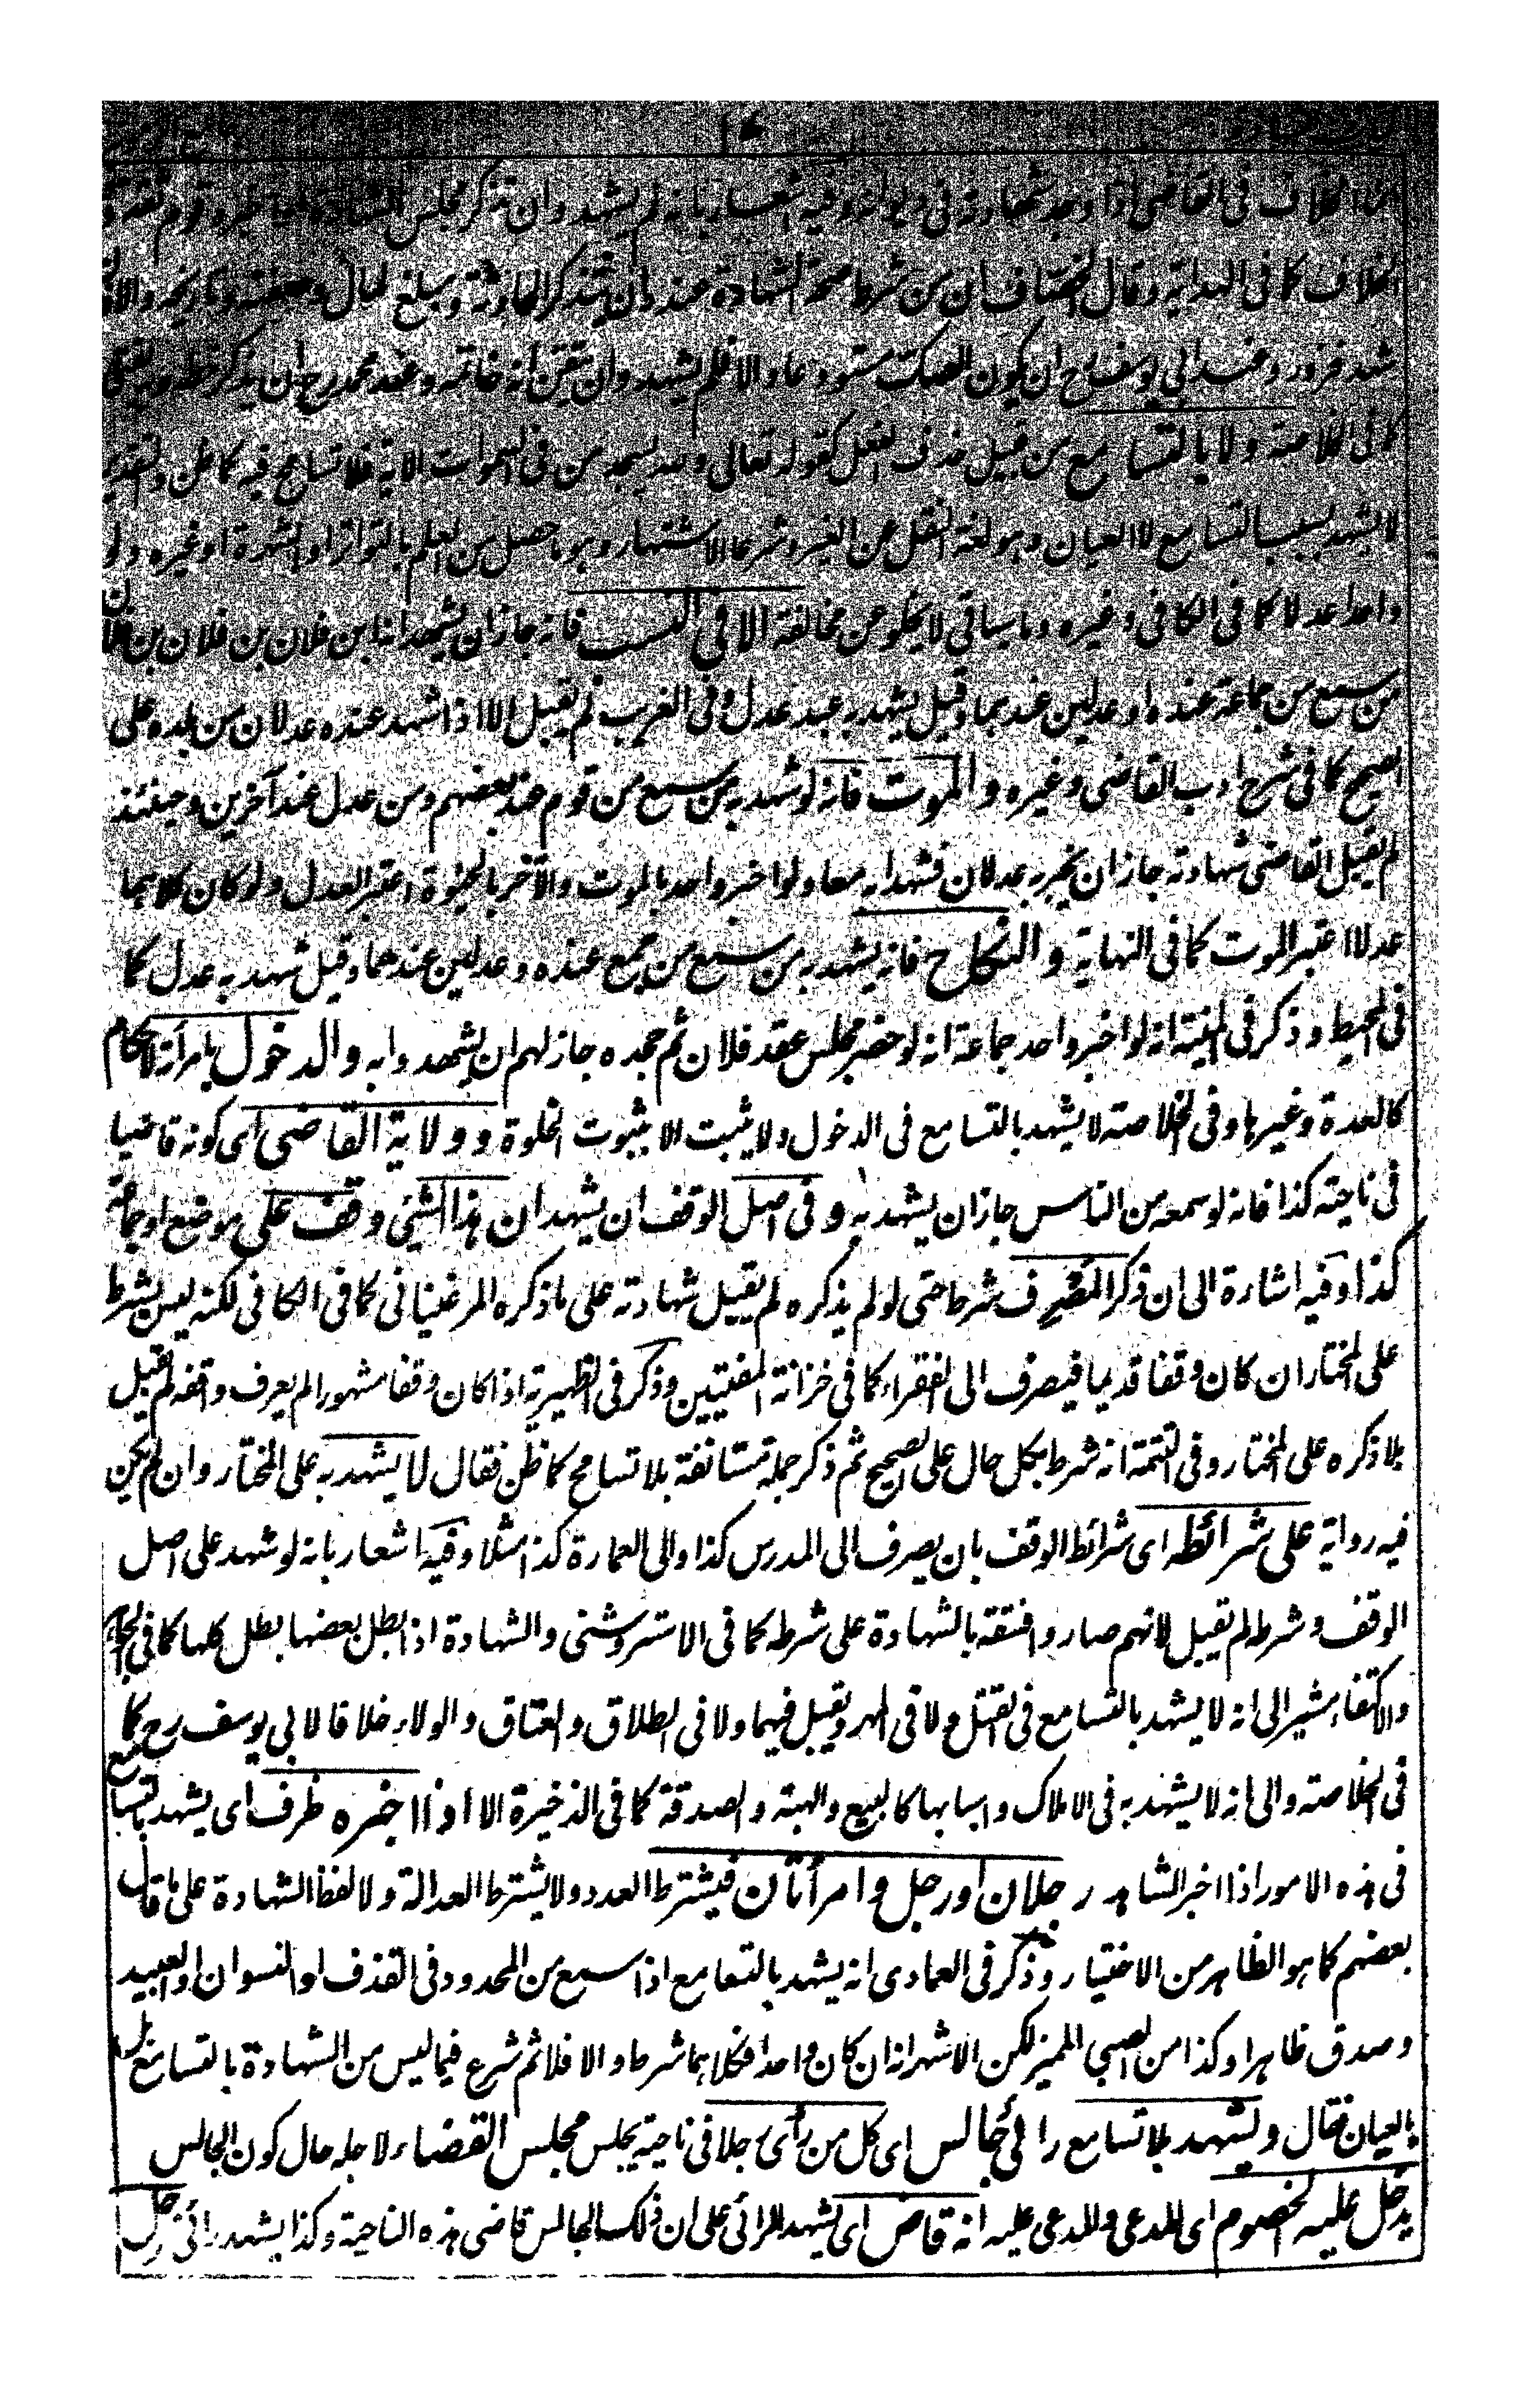 الخلاف فى القاضى اذا وجد شهادته فى ديوانه وفيه اشعار بانه لم يشهد وان تذكر مجلس الشهادة
الخلاف كما فى الهداية وقال الخصاف ان من شرط صحة الشهادة عنده ان يتذكر الحادثة ومبلغ المال وصفته وتاريخه والا
شهد فزور وعند ابى يوسف رح ان يكون الصك مستودعا والا فلم يشهد وان تيقن انه خاتمه وعند محمد رح ان يذكر خطه وبه يفتى
كما فى الخلاصة ولا بالتسامع من قبيل حذف الفعل كقوله تعالى ولله يسجد من فى السموات الاية فلا تسامح فيه كما ظن والتقدير
لا يشهد بسبب التسامع لا العيان وهو لغة النقل عن الغير وشرعا الاشتهار وهو ما حصل من العلم بالتواتر او الشهرة او غيره ولو
واحدا عدلا كما فى الكافى وغيره وما سياتى لا يخلو عن مخالفة الا فى النسب فانه جاز ان يشهد انه ابن فلان بن فلان بن فلان
من سمع من جماعة عنده او عدلين عندهما وقيل يشهد به عند عدل وفى الغريب لم يقبل الا اذا شهد عنده عدلان من بلده على
الصحيح كما فى شرح ادب القاضى وغيره والموت فانه لو شهد به من سمع من قوم عند بعضهم ومن عدل عند آخرين وحينئذ
لم يقبل القاضى شهادته جاز ان يخبر به عدلان فشهدا به معا ولو اخبر واحد بالموت والآخر بالحيوة اعتبر العدل ولو كان كلاهما
عدلا اعتبر الموت كما فى النهاية والنكاح فانه يشهد به من سمع من جمع عنده وعدلين عندهما وقيل شهد به عدل كما
فى المحيط وذكر فى المنية انه لو اخبر واحد جماعة انه لو حضر مجلس عقد فلان ثم جحده جاز لهم ان يشهدوا به والدخول بامرأته لاحكام
كالعدة وغيرها وفى الخلاصة لا يشهد بالتسامع فى الدخول ولا يثبت الا بثبوت الخلوة وولاية القاضى اى كونه قاضيا
فى ناحية كذا فانه لو سمعه من الناس جاز ان يشهد به وفى اصل الوقف ان يشهد ان هذا الشئ وقف على موضع او جماعة
كذا وفيه اشارة الى ان ذكر المصرف شرط حتى لو لم يذكره لم يقبل شهادته على ما ذكره المرغينانى كما فى الكافى لكنه ليس بشرط
على المختار ان كان وقفا قديما فيصرف الى الفقراء كما فى خزانة المفتيين وذكر فى الظهيرية اذا كان وقفا مشهورا لم يعرف واقفه لم يقبل
بلا ذكره على المختار وفى التتمة انه شرط بكل حال على الصحيح ثم ذكر جملة مستانفة بلا تسامح كما ظن فقال لا يشهد به على المختار وان لم يكن
فيه رواية على شرائطه اى شرائط الوقف بان يصرف الى المدرس كذا والى العمارة كذا مثلا وفيه اشعار بانه لو شهد على اصل
الوقف وشرطه لم يقبل لانهم صاروا فسقة بالشهادة على شرطه كما فى الاستروشنى والشهادة اذا بطل بعضها بطل كلها كما فى
والاكتفاء مشير الى انه لا يشهد بالتسامع فى القتل ولا فى المهر ويقبل فيهما ولا فى الطلاق والعتاق والولاء خلافا لابى يوسف رح كما
فى الخلاصة والى انه لا يشهد به فى الاملاك واسبابها كالبيع والهبة والصدقة كما فى الذخيرة الا اذا اخبره ظرف اى يشهد بالتسامع
فى هذه الامور اذا اخبر الشاهد رجلان او رجل وامرأتان فيشترط العدد ولا يشترط العدالة ولا لفظ الشهادة على ما قال
بعضهم كما هو الظاهر من الاختيار وذكر فى العمادى انه يشهد بالتسامع اذا سمع من المحدود فى القذف او النسوان او العبيد
وصدق ظاهرا وكذا من الصبى المميز لكن الاشهر انه ان كان واحدا فكلاهما شرط والا فلا ثم شرع فيما ليس من الشهادة بالتسامع بل
بالعيان فقال ويشهد بلا تسامع رائى جالس اى كل من رأى رجلا فى ناحية يجلس مجلس القضاء لاجله حال كون الجالس
يدخل عليه الخصوم اى المدعى والمدعى عليه انه قاض اى يشهد الرائى على ان ذلك الجالس قاضى هذه الناحية وكذا يشهد رائى رجل